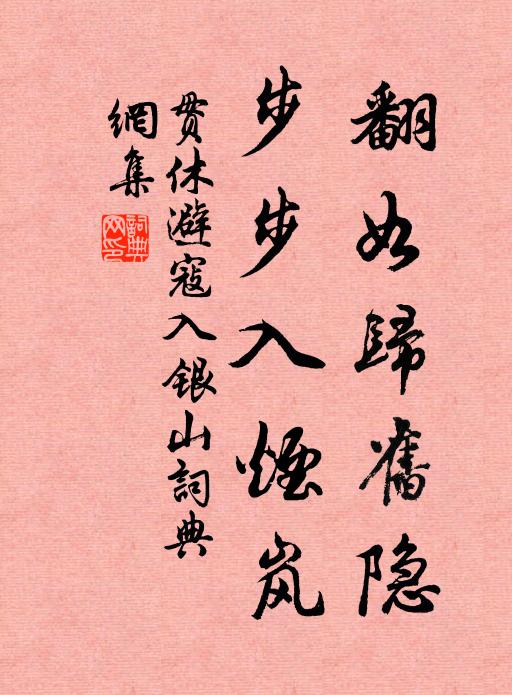 翻如歸舊隐
步步入煙岚
贯休避寇入银山詞典
網集
詞典網印